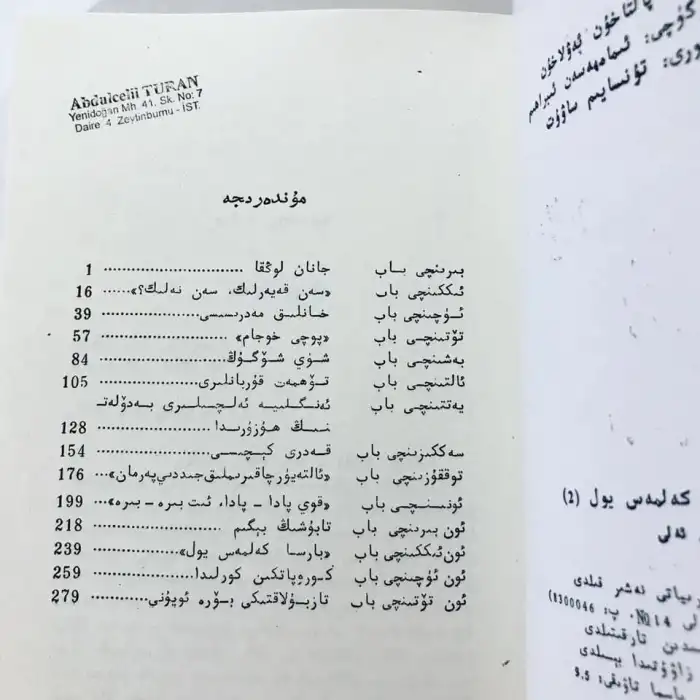 Abdulcelil TURAN
Yenidoğan Mh. 41. Sk. No: 7
Daire 4 Zeytinburnu - İST.
مۇندەرىجە
بىرىنچى باب جانان لوڭقا 1
ئىككىنچى باب «سەن قەيەرلىك، سەن نەلىك؟» 16
ئۈچىنچى باب خانلىق مەدرىسىسى 39
تۆتىنچى باب «پوچى خوجام» 57
بەشىنچى باب شۈي شۆگۇڭ 84
ئالتىنچى باب تۆھمەت قۇربانلىرى 105
يەتتىنچى باب ئەنگلىيە ئەلچىلىرى بەدۆلەت-
نىڭ ھۇزۇرىدا 128
سەككىزىنچى باب قەدرى كېچىسى 154
توققۇزىنچى باب «ئالتەيۈرچاقىرىملىق جىددىي پەرمان» 176
ئونىنچى باب «قوي پادا - پادا، ئىت بىرە - بىرە» 199
ئون بىرىنچى باب تابۇشىڭ بېگىم 218
ئون ئىككىنچى باب «بارسا كەلمەس يول» 239
ئون ئۈچىنچى باب كوروپاتكىن كورلىدا 259
ئون تۆتىنچى باب تازبۇلاقتىكى بۆرە ئويۇنى 279
پالتاخۇن ئەۋلاخۇن
گۈچى: ئىمامھەسەن ئىبراھىم
ورى: تۇنسايىم ساۋۇت
كەلمەس يول (2)
ئەلى
رىياتى نەشر قىلدى
لى №14 پ: 830046)
سىدىن تارقىتىلدى
زاۋۇتىدا بېسىلدى
باسما تاۋىقى: 9.5